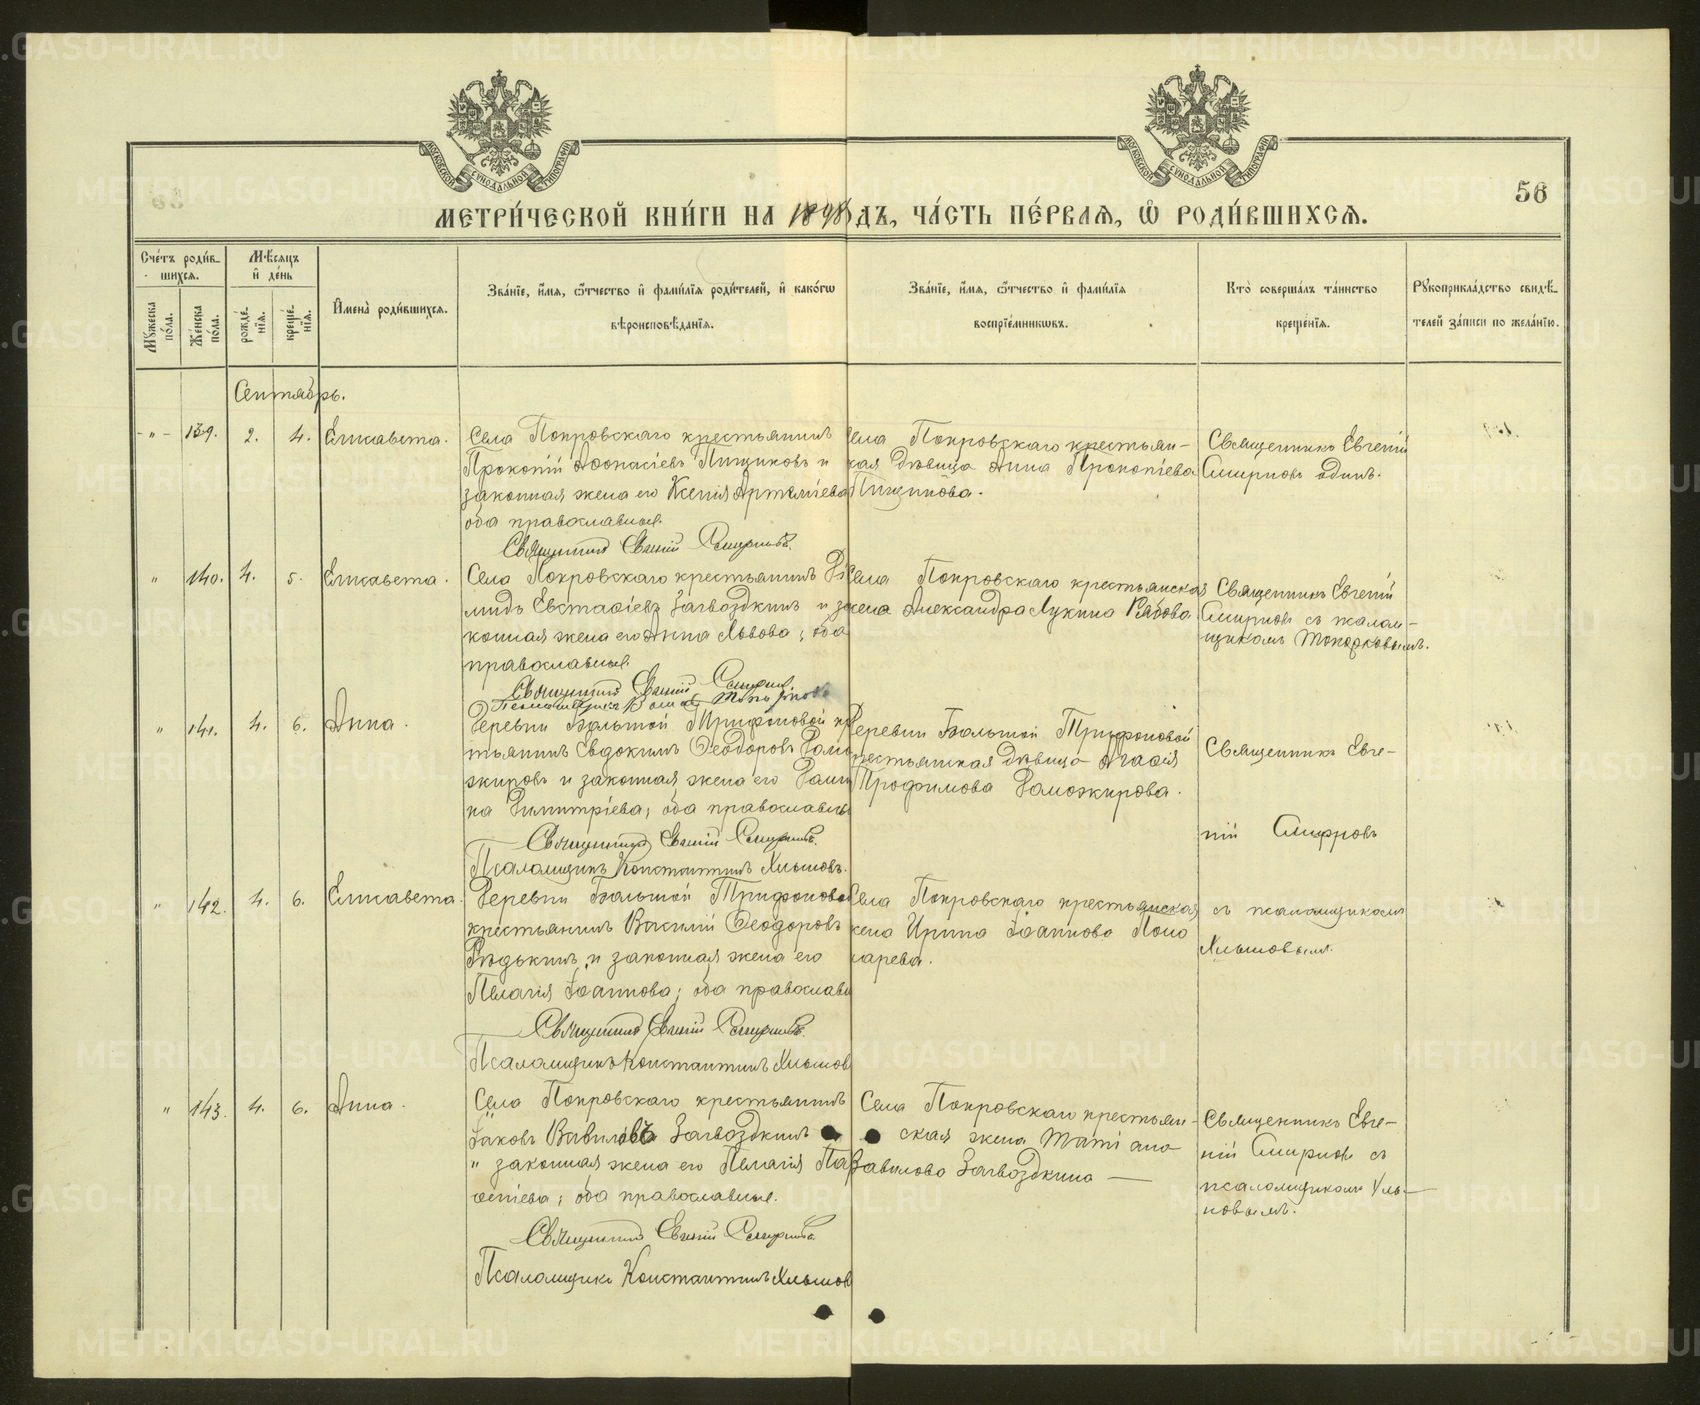 МОСКОВСКОЙ СѴНОДАЛЬНОЙ ТИПОГРАФІИ
МОСКОВСКОЙ СѴНОДАЛЬНОЙ ТИПОГРАФІИ
56
МЕТРИ́ЧЕСКОЙ КНИ́ГИ НА 1898 ДЪ, ЧА́СТЬ ПЕ́РВАѦ, Ѡ҆ РОДИ́ВШИХСѦ.
Сче́тъ роди́вшихсѧ.
Мѹ́жеска по́ла.
Же́нска по́ла.
Мѣ́сѧцъ и҆ де́нь
рожде́нїѧ.
креще́нїѧ.
И҆мена̀ роди́вшихсѧ.
Зва́нїе, и҆́мѧ, ѻ҆́тчество и҆ фами́лїѧ роди́телей, и҆ како́гѡ
вѣроисповѣ́данїѧ.
Зва́нїе, и҆́мѧ, ѻ҆́тчество и҆ фами́лїѧ
воспрїе́мникѡвъ.
Кто̀ соверша́лъ та́инство
креще́нїѧ.
Рѹкоприкла́дство свидѣ́телей за́писи по жела́нїю.
Сентябрь.
- " - 139. 2. 4. Елисавета.
Села Покровскаго крестьянинъ
Прокопій Аѳонасіевъ Пищиковъ и
законная жена его Ксенія Артеміева
оба православные.
Священникъ Евгеній Смирновъ.
Села Покровскаго крестьян-
ская дѣвица Анна Прокопіева
Пищикова.
Священникъ Евгеній
Смирновъ одинъ.
" 140. 4. 5. Елисавета.
Села Покровскаго крестьянинъ
мидъ Евстаѳіевъ Загвоздкинъ и за
конная жена его Анна Львова; оба
православные.
Священникъ Евгеній Смирновъ
Села Покровскаго крестьянская
жена Александра Лукина Рябова
Священникъ Евгеній
Смирновъ съ псалом-
щикомъ Топорковымъ.
" 141. 4. 6. Анна.
Деревни Большой Трифоновой кр
тьянинъ Евдокимъ Ѳеодоровъ Замо
жировъ и законная жена его
на Димитріева; оба православны
Священникъ Евгеній Смирновъ.
Псаломщикъ Константинъ Хлыновъ.
Деревни Большой Трифоновой
крестьянская дѣвица Агаѳія
Трофимова Заможирова.
Священникъ Евге-
ній Смирновъ
" 142. 4. 6. Елисавета.
Деревни Большой Трифоново
крестьянинъ Василій Ѳеодоровъ
Рѣдькинъ, и законная жена его
Пелагія Іоаннова; оба православн
Священникъ Евгеній Смирновъ.
Псаломщикъ Константинъ Хлынов
Села Покровскаго крестьянская
жена Ирина Іоаннова Поно
марева.
съ псаломщикомъ
Хлыновымъ.
" 143. 4. 6. Анна.
Села Покровскаго крестьянинъ
Іаковъ Вавиловъ Загвоздкинъ
" законная жена его Пелагія Пар
ѳеніева; оба православные.
Священникъ Евгеній Смирновъ.
Псаломщикъ Константинъ Хлынов
Села Покровскаго крестьян-
ская жена Татіана
Вавилова Загвоздкина —
Священникъ Евге-
ній Смирновъ съ
псаломщикомъ Хлы-
новымъ.
METRIKI.GASO-URAL.RU